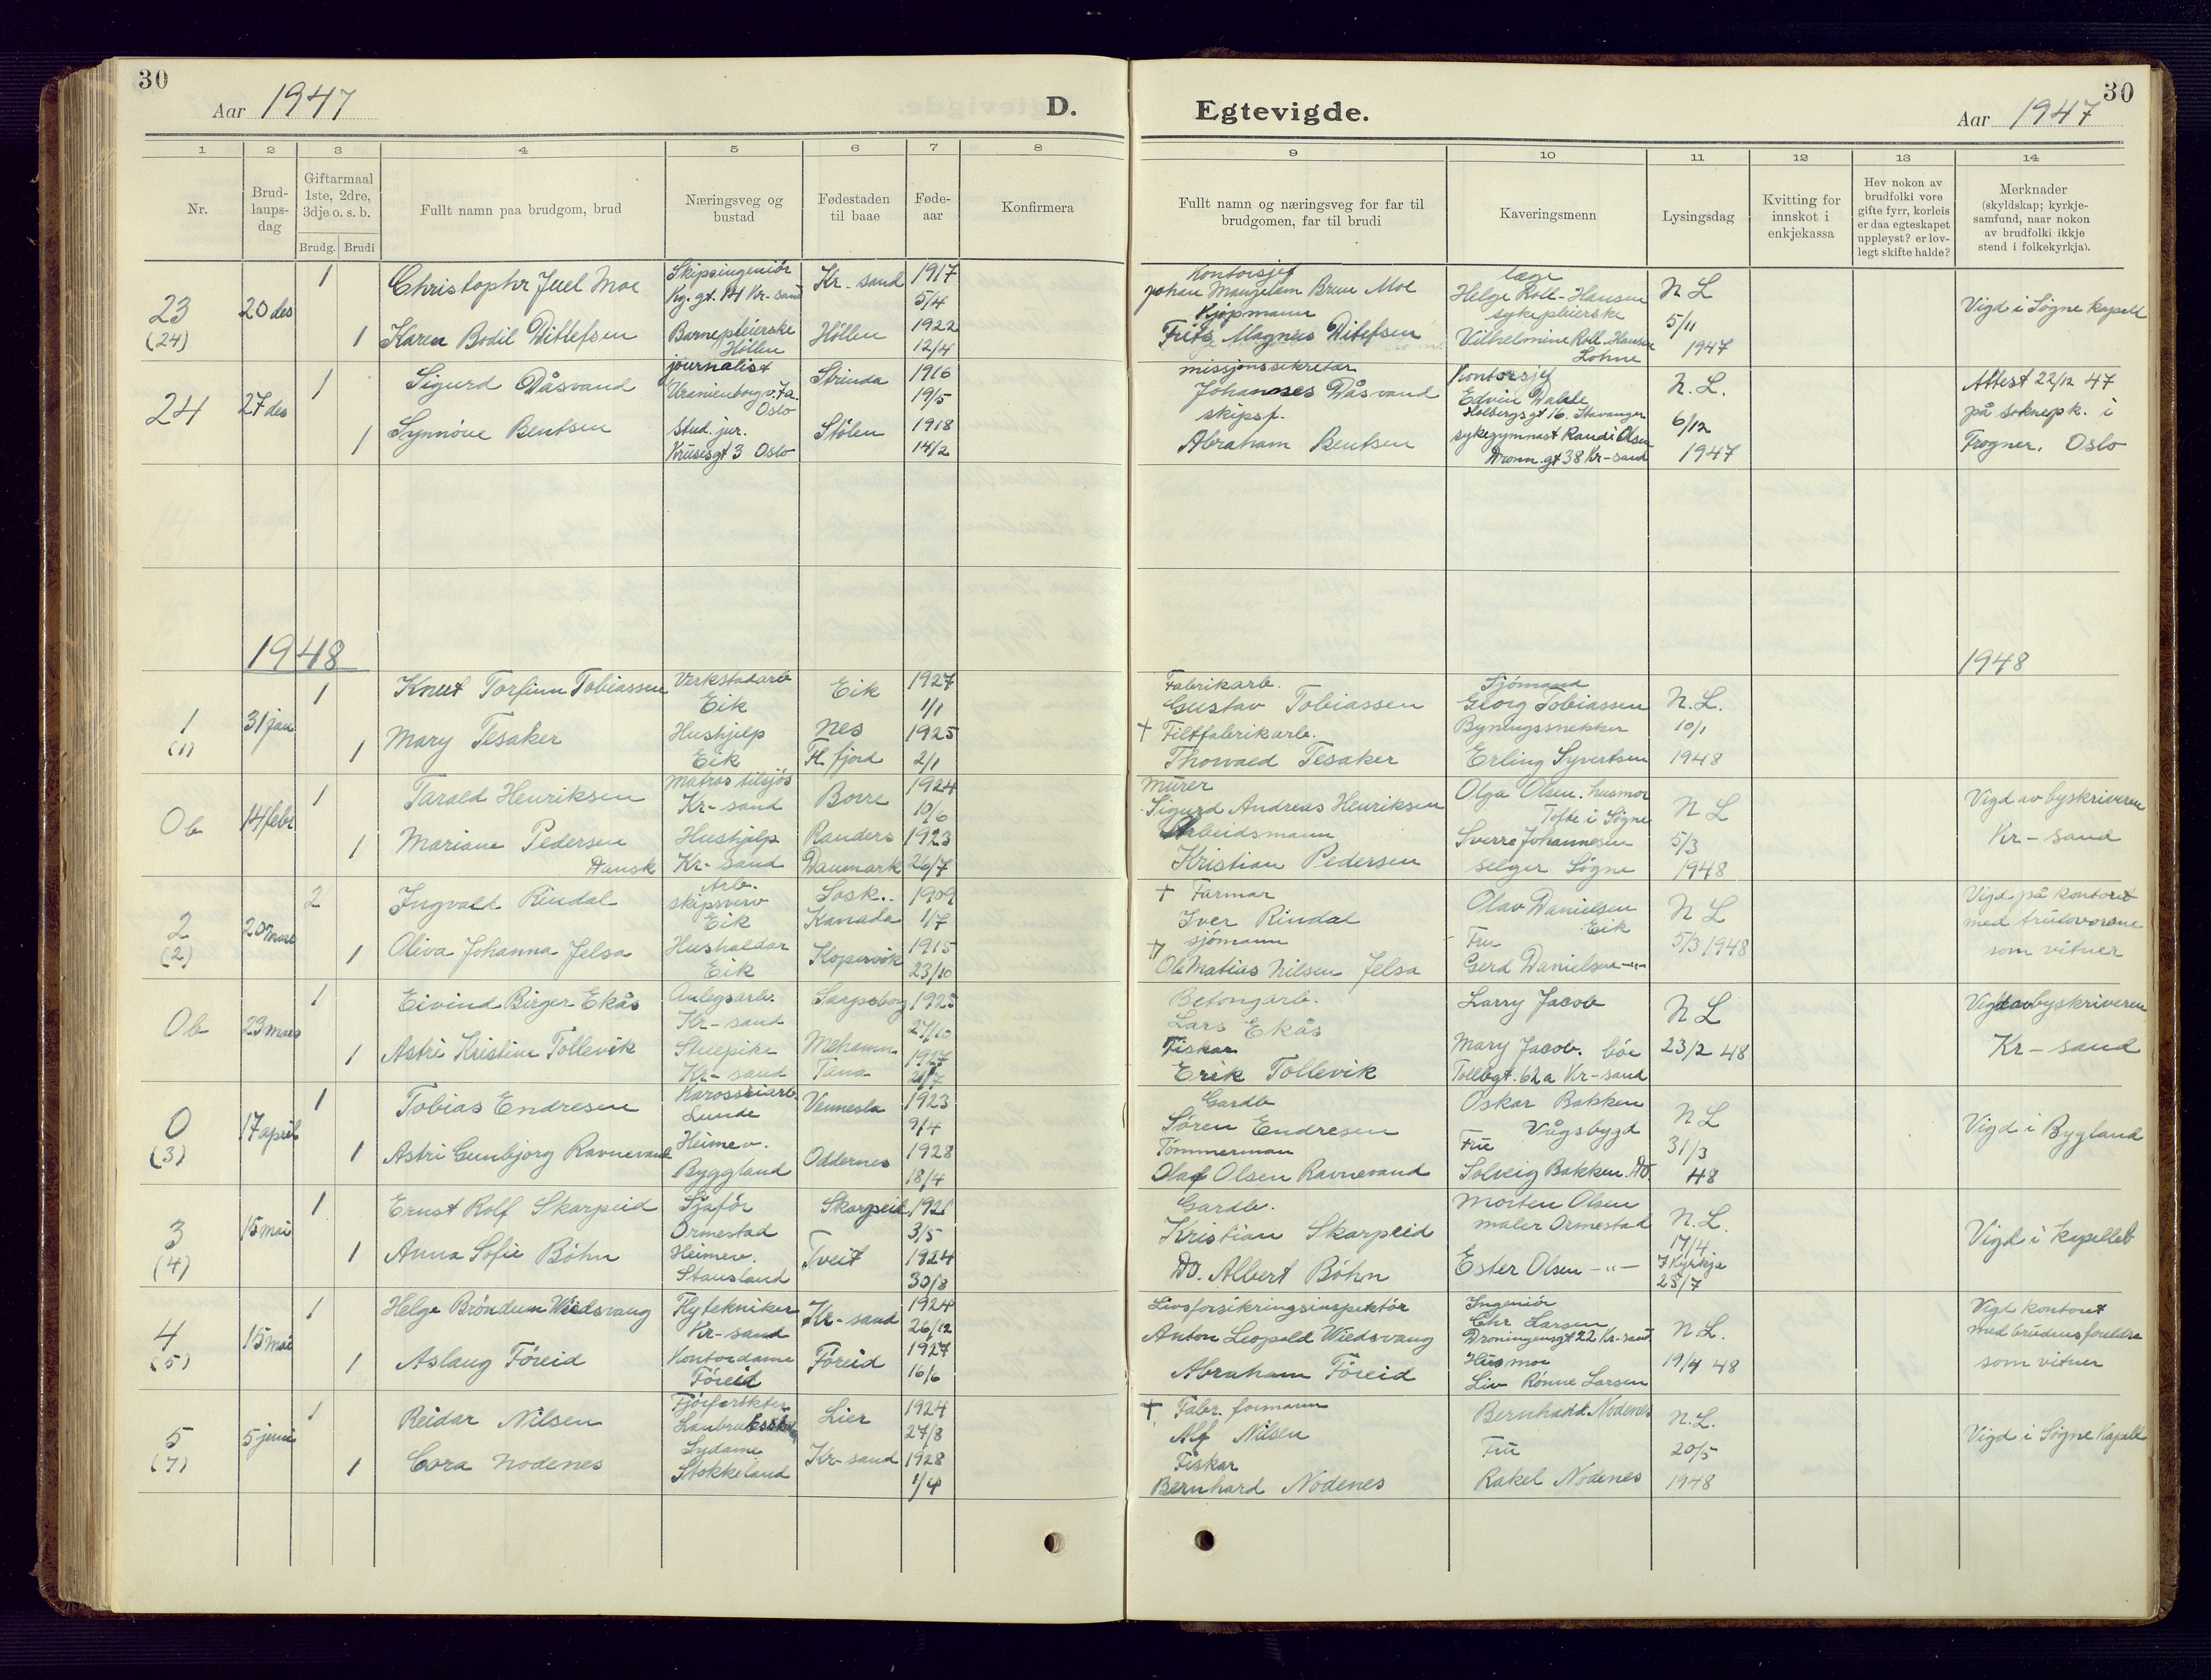 30
Aar 1947
D.
Egtevigde.
Aar 1947
30
1 2 3 4 5 6 7 8 9 10 11 12 13 14
Nr.
Brud-
laups-
dag
Giftarmaal
1ste, 2dre,
3dje o. s. b.
Brudg. Brudi
Fullt namn paa brudgom, brud
Næringsveg og
bustad
Fødestaden
til baae
Føde-
aar
Konfirmera
Fullt namn og næringsveg for far til
brudgomen, far til brudi
Kaveringsmenn
Lysingsdag
Kvitting for
innskot i
enkjekassa
Hev nokon av
brudfolki vore
gifte fyrr, korleis
er daa egteskapet
uppløyst? er lov-
legt skifte halde?
Merknader
(skyldskap; kyrkje-
samfund, naar nokon
av brudfolki ikkje
stend i folkekyrkja).
23
(24)
20 des
1
Christopher Juel Moe
Skipsingeniør
Kg. gt. 14 Kr-sand
Kr.-sand
1917
5/4
1
Karen Bodil Ditlefsen
Barnepleierske
Høllen
Høllen
1922
12/4
Kontorsjef
Johan Mangelsen Brun Moe
Kjøpmann
Frits Magnus Ditlefsen
læge
Helge Roll-Hansen
sykepleierske
Vilhelmine Roll-Hansen
Lohne
N L
5/11
1947
Vigd i Søgne kapell
24
27 des
1
Sigurd Dåsvand
journalist
Uranienborgv. 7a.
Oslo
Strinda
1916
19/5
1
Synnöve Bentsen
Stud. jur.
Krusesgt 3 Oslo
Stölen
1918
14/2
missjonssekretær
Johannes Dåsvand
skipsf.
Abraham Bentsen
Kontorsjef
Edvin Dahle
Holbergsgt 16. Stavanger
sykegymnast Randi Olsen
Dronn. gt 38 Kr-sand
N. L.
6/12
1947
Attest 22/12 47
på soknepk. i
Frogner. Oslo
1948
1948
1
(1)
31 jan
1
Knut Torfinn Tobiassen
Verkstadarb
Eik
Eik
1927
1/1
1
Mary Tesaker
Hushjelp
Eik
Nes
Fl. fjord
1925
2/1
Fabrikarb.
Gustav Tobiassen
+ Filtfabrikarb.
Thorvald Tesaker
Sjömand
Georg Tobiassen
Bygningssnekker
Erling Syvertsen
N. L.
10/1
1948
Ob
14 febr
1
Tarald Henriksen
Matros tilsjøs
Kr-sand
Borre
1924
10/6
1
Mariane Pedersen
Dansk
Hushjelp
Kr-sand
Randers
Danmark
1923
26/7
Murer
Sigurd Andreas Henriksen
Arbeidsmann
Kristian Pedersen
Olga Olsen. husmor
Tofte i Søgne
Sverre Johannesen
selger Søgne
N L
5/3
1948
Vigd av byskriveren
Kr-sand
2
(2)
20 mars
2
Ingvald Rindal
Arb.
skipsverv
Eik
Sask..
Kanada
1909
1/7
1
Oliva Johanna Jelsa
Husholdar
Eik
Kopervik
1915
23/10
+ Farmar
Iver Rindal
sjömann
+ Ole Matias Nilsen Jelsa
Olav Danielsen
Eik
Fru
Gerd Danielsen -"-
N L
5/3 1948
Vigd på kontoret
med trulovarane
som vitner
Ob
23 mars
1
Eivind Birger Ekås
Anlegsarb.
Kr-sand
Sarpsborg
1925
27/10
1
Astri Kristine Tollevik
Stuepike
Kr-sand
Mehamn
Tana
1927
21/7
Betongarb.
Lars Ekås
Fiskar
Erik Tollevik
Larry Jacob
Mary Jacob. båe
Tollbgt. 62a Kr-sand
N L
23/2 48
Vigd av byskriveren
Kr-sand
0
(3)
17 april
1
Tobias Endresen
Karosseriarb
Lunde
Vennesla
1923
9/4
1
Astri Gunbjorg Ravnevand
Heimev.
Byggland
Oddernes
1928
18/4
Gardb
Søren Endresen
Tömmerman
Olaf Olsen Ravnevand
Oskar Bakken
Vågsbygd
Fru
Solveig Bakken. Do.
N L
31/3
48
Vigd i Bygland
3
(4)
15 mai
1
Ernst Rolf Skarpeid
Sjåför
Ormestad
Skarpeid
1921
3/5
1
Anna Sofie Böhn
Heimev.
Stausland
Tveit
1924
30/8
Gardb.
Kristian Skarpeid
Do. Albert Böhn
Morten Olsen
maler Ormestad
Ester Olsen -"-
N. L.
17/4
I Kyrkja
25/7
Vigd i kapellet
4
(5)
15 mai
1
Helge Bröndum Wiedsvang
Flytekniker
Kr-sand
Kr-sand
1924
26/12
1
Aslaug Föreid
Kontordame
Föreid
Föreid
1927
16/6
Livsforsikringsinspektör
Anton Leopold Wiedsvang
Abraham Föreid
Ingeniör
Chr Larsen
Droningensgt 22 Kr-sand
Husmor
Liv Rønne Larsen
N L.
19/4 48
Vigd kontoret
med brudens foreldre
som vitner
5
(7)
5 juni
1
Reidar Nilsen
Lier
1924
27/8
1
Cora Nodenes
Stokkeland
Kr-sand
1928
1/4
+ Fabr. formann
Alf Nilsen
Fiskar
Bernhard Nodenes
Bernhard Nodenes
Fru
Rakel Nodenes
N. L.
20/5
1948
Vigd i Søgne Kapell